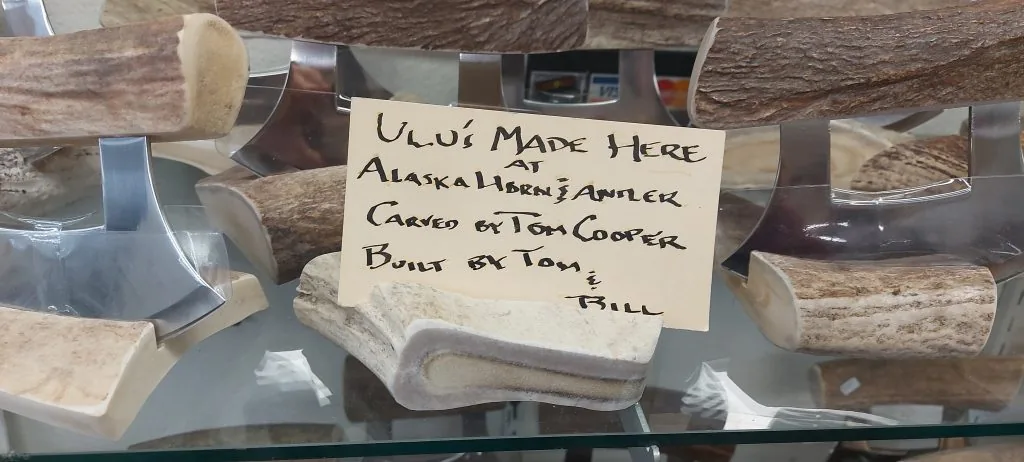 ULU'S MADE HERE
AT
ALASKA HORN & ANTLER
CARVED BY TOM COOPER
BUILT BY TOM
&
BILL
VISA